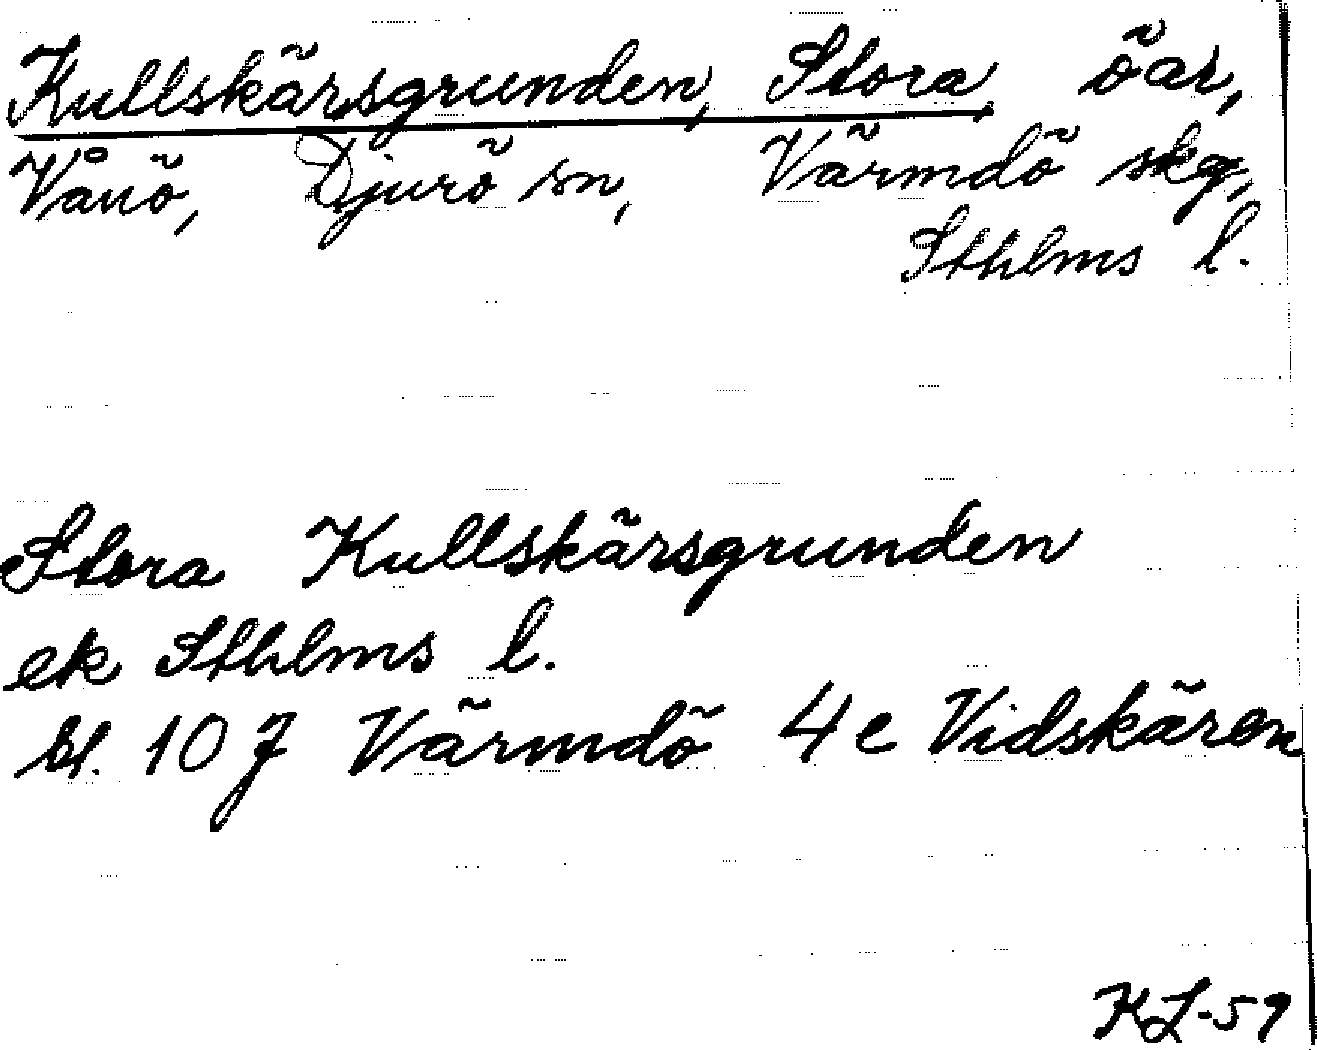 Kullskärsgrunden, Stora, öar,
Vånö, Djurö sn, Värmdö skg,
Sthlms l.
Stora Kullskärsgrunden
ek Sthlms l.
bl. 107 Värmdö 4 e Vidskären
KL-59